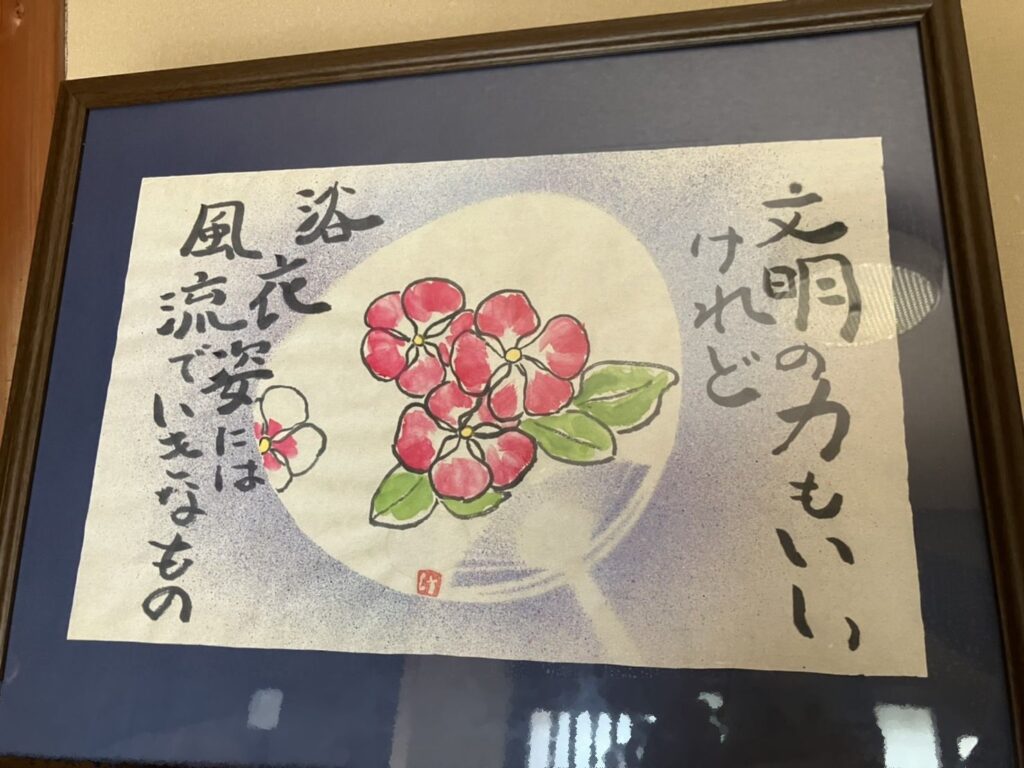 文明の力もいい
けれど
浴衣姿には
風流でいきなもの